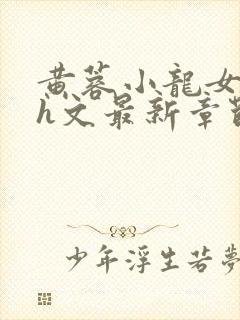 黄蓉小龍女
h文最新章節
少年浮生若夢